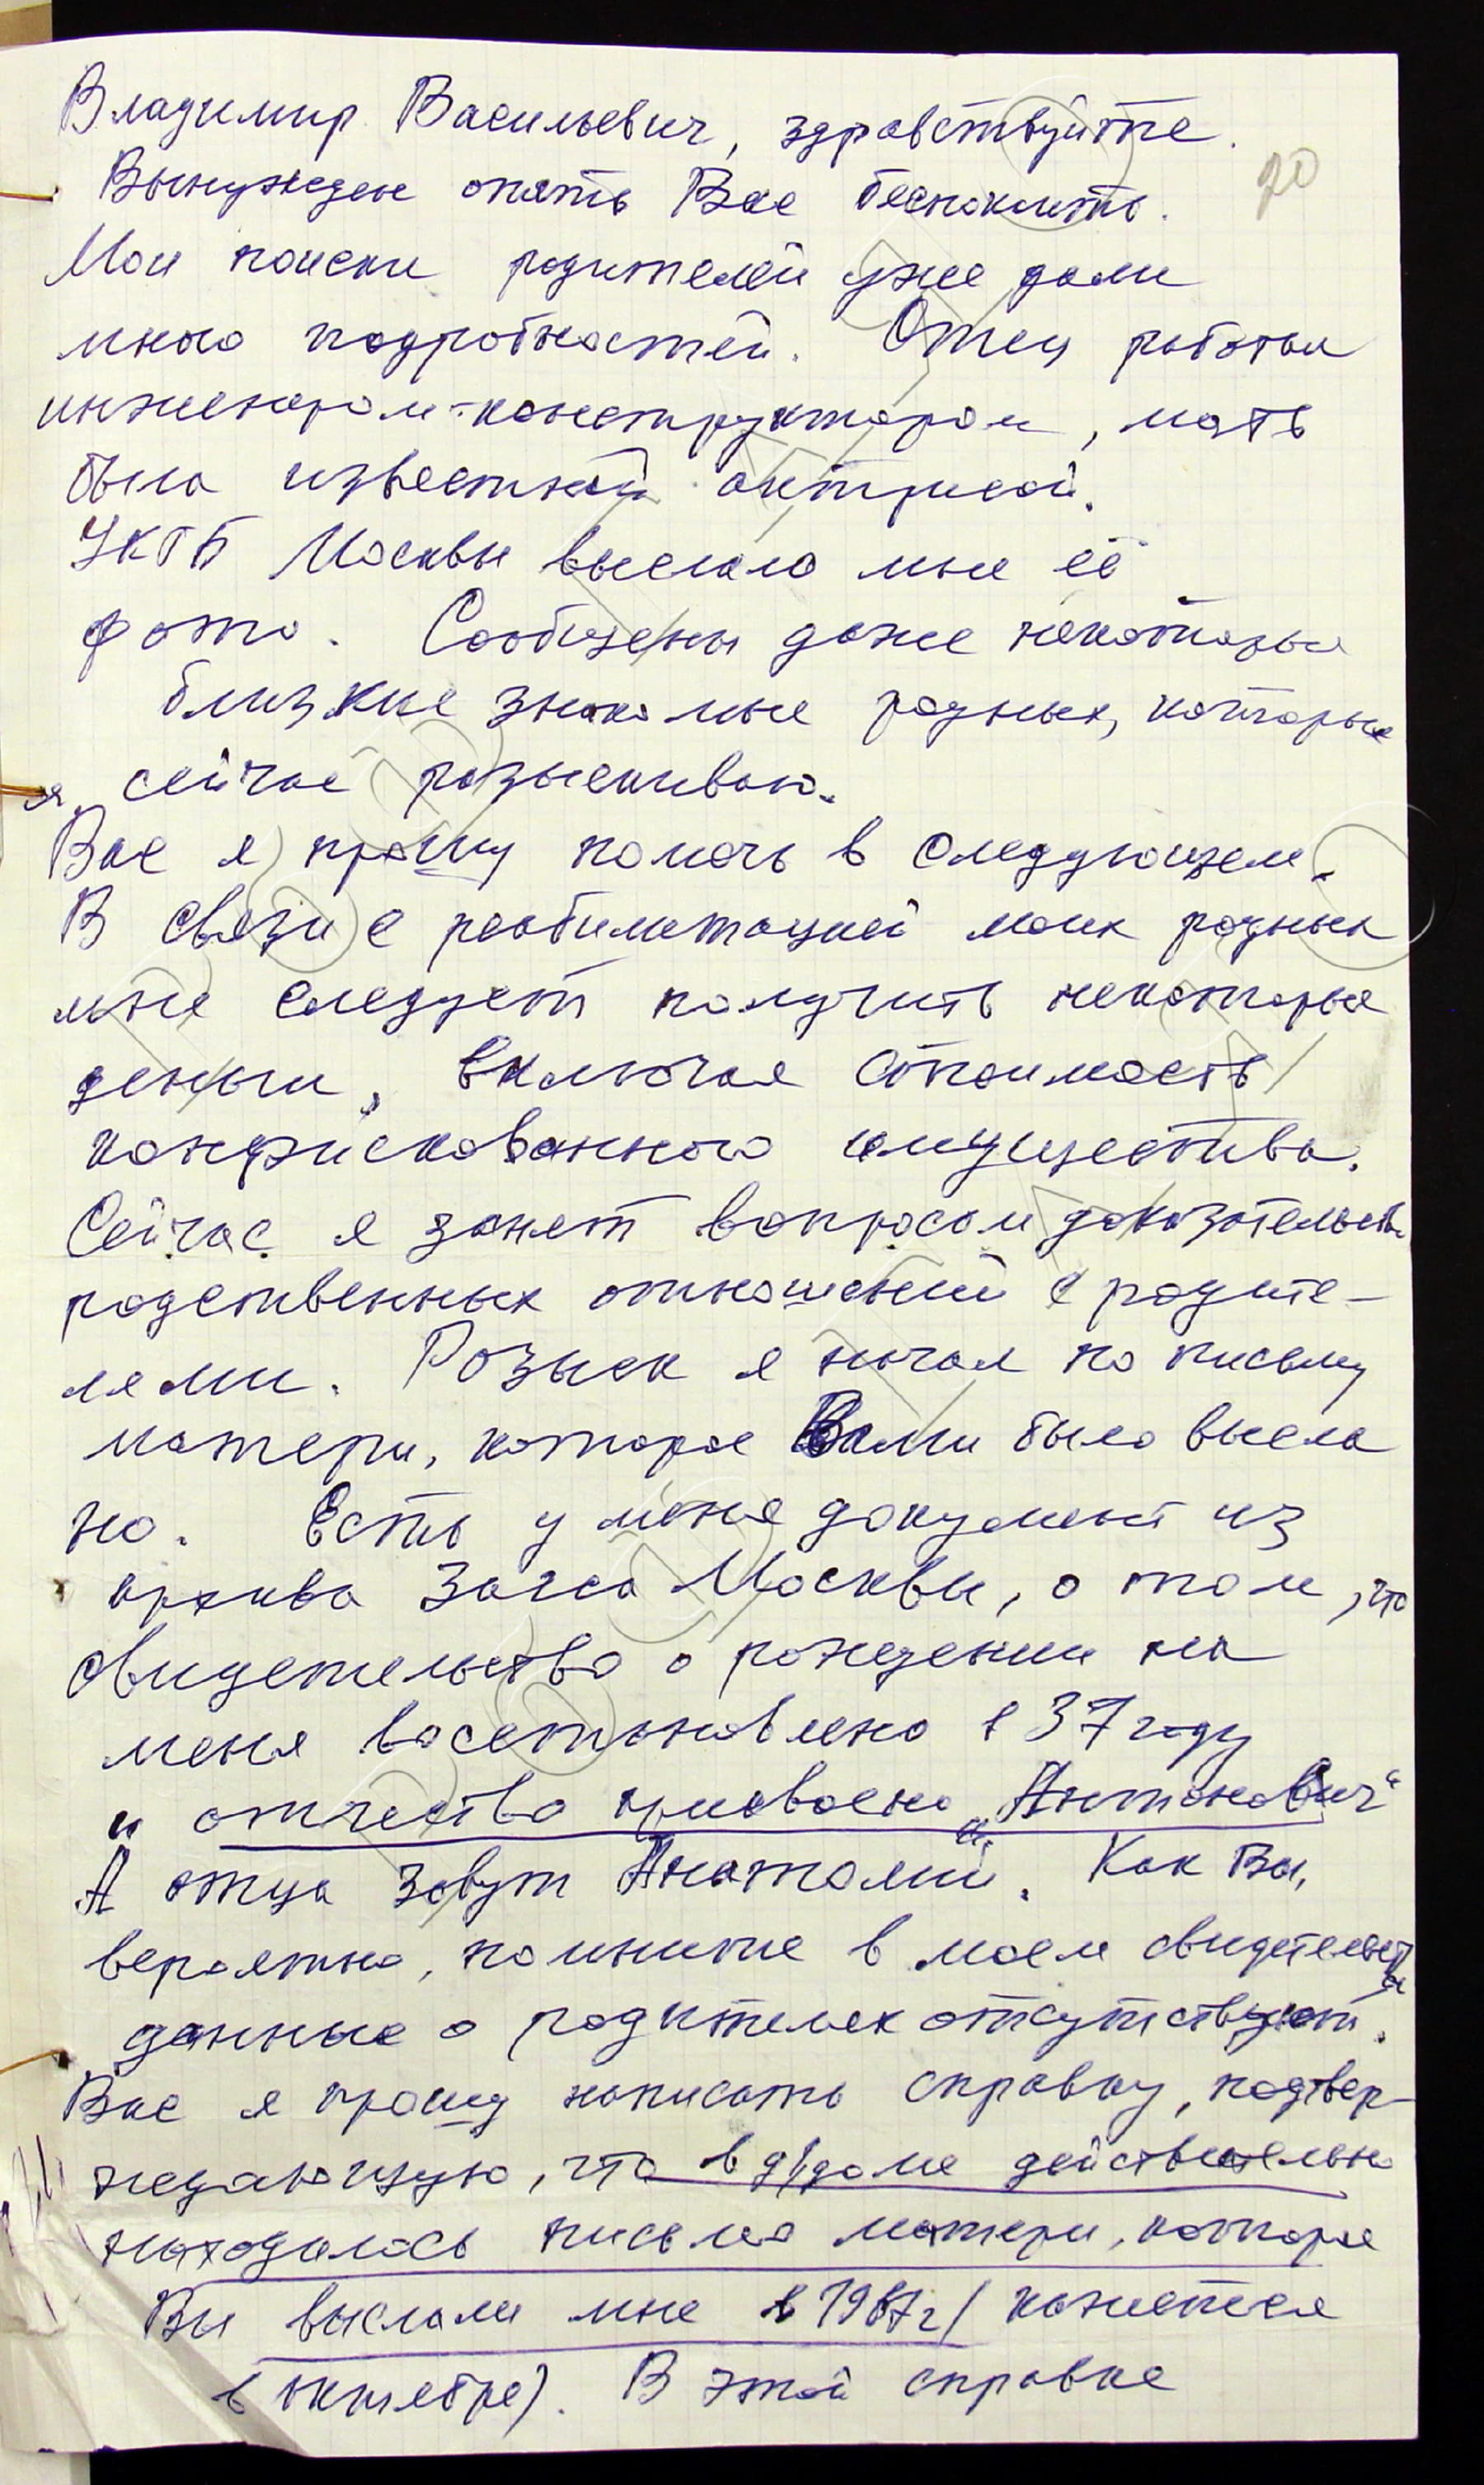 Владимир Васильевич, здравствуйте.
Вынужден опять Вас беспокоить.
Мои поиски родителей уже дали
много подробностей. Отец работал
инженером-конструктором, мать
была известной актрисой.
УКГБ Москвы выслало мне её
фото. Сообщены даже некоторые
близкие знакомые родных, которых
я сейчас разыскиваю.
Вас я прошу помочь в следующем.
В связи с реабилитацией моих родных
мне следует получить некоторые
деньги, включая стоимость
конфискованного имущества.
Сейчас я занят вопросом доказательств
родственных отношений с родите-
лями. Розыск я начал по письму
матери, которое Вами было высла
но. Есть у меня документ из
архива Загса Москвы, о том, что
свидетельство о рождении на
меня восстановлено в 37 году
и отчество присвоено „Антонович“
А отца зовут Анатолий. Как Вы,
вероятно, помните в моем свидетельстве
данные о родителях отсутствуют.
Вас я прошу написать справку, подтвер-
ждающую, что в д/доме действительно
находилось письмо матери, которое
Вы выслали мне в 1987г/ кажется
в октябре). В этой справке